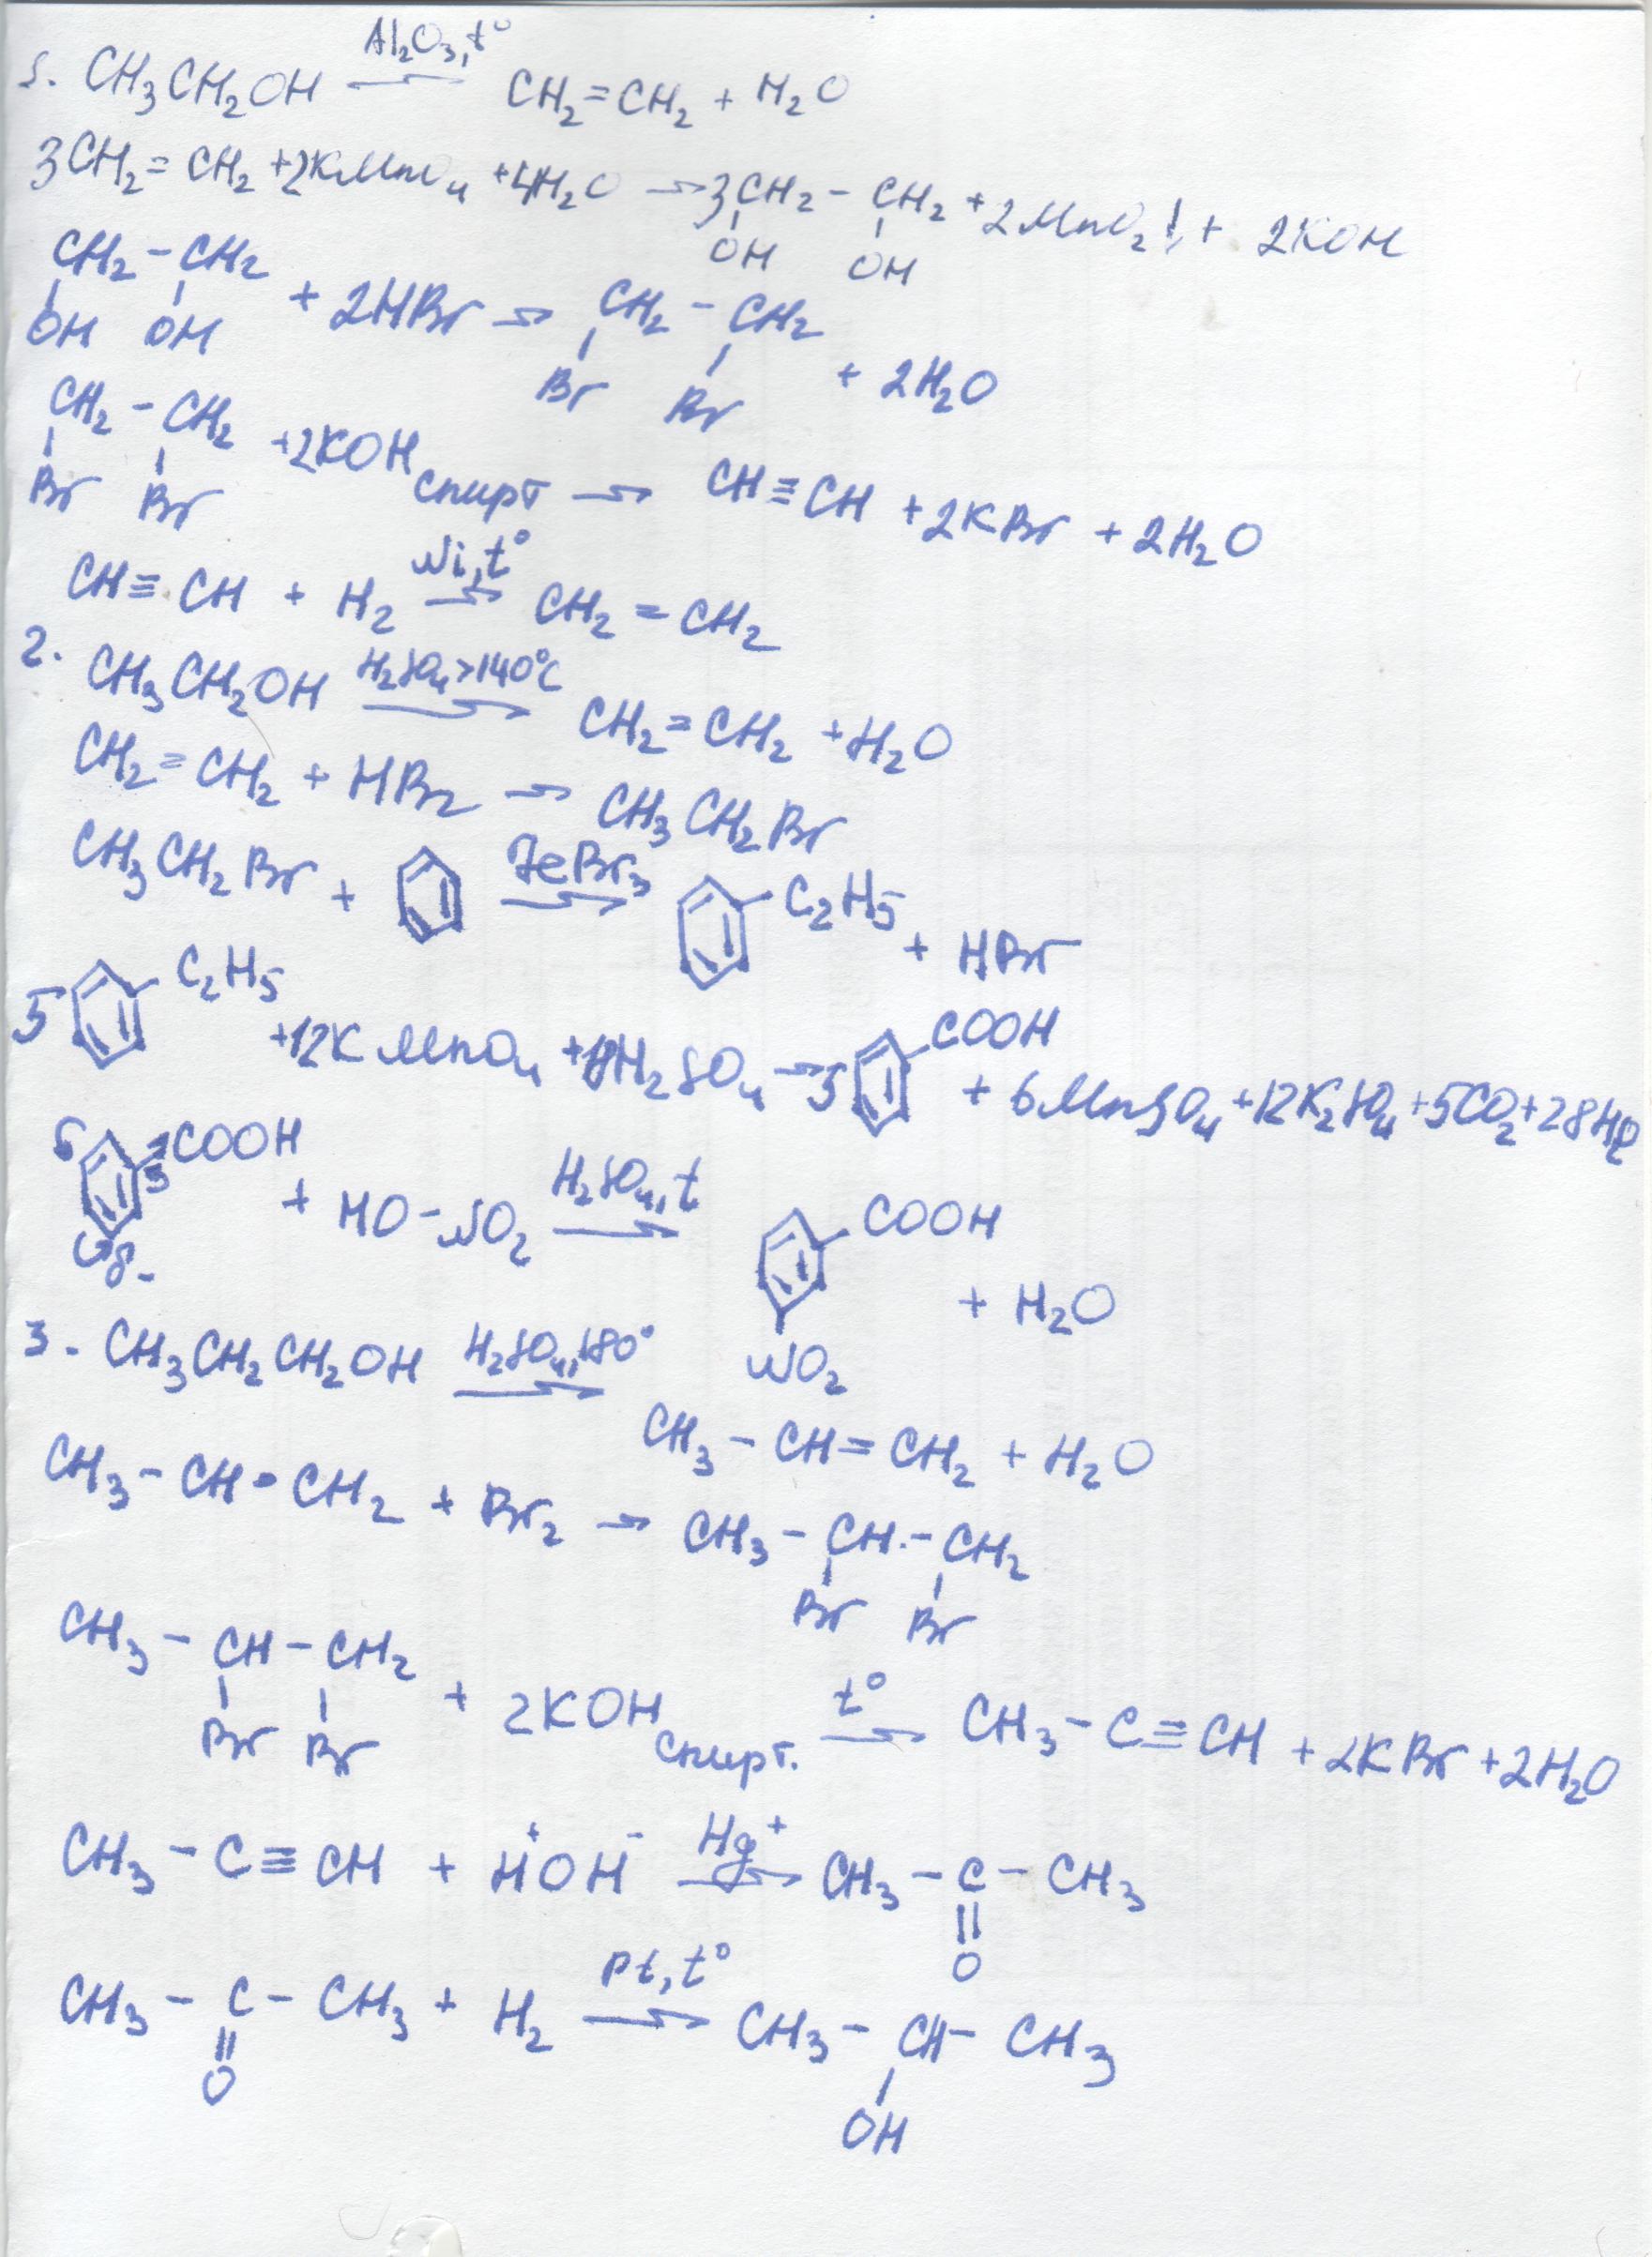 1. CH₃CH₂OH Al₂O₃, t° → CH₂=CH₂ + H₂O
3CH₂=CH₂ +2KMnO₄ +4H₂O → 3CH₂-CH₂ +2MnO₂↓ + 2KOH
OH OH
CH₂-CH₂ + 2HBr → CH₂-CH₂ + 2H₂O
OH OH Br Br
CH₂-CH₂ +2KOH спирт → CH≡CH +2KBr + 2H₂O
Br Br
CH≡CH + H₂ Ni, t° → CH₂=CH₂
2. CH₃CH₂OH H₂SO₄ >140°C → CH₂=CH₂ +H₂O
CH₂=CH₂ + HBr → CH₃CH₂Br
CH₃CH₂Br + FeBr₃ → C₂H₅ + HBr
5 C₂H₅ +12KMnO₄ + H₂SO₄ → 5 COOH + 6MnSO₄ +12K₂SO₄ +5CO₂ +28H₂O
COOH + HO-NO₂ H₂SO₄, t → COOH + H₂O
NO₂
3. CH₃CH₂CH₂OH H₂SO₄, 180° →
CH₃-CH=CH₂ + H₂O
CH₃-CH=CH₂ + Br₂ → CH₃-CH-CH₂
Br Br
CH₃-CH-CH₂ + 2KOH спирт. t° → CH₃-C≡CH +2KBr +2H₂O
Br Br
CH₃-C≡CH + H⁺OH⁻ Hg⁺ → CH₃-C-CH₃
O
CH₃-C-CH₃ + H₂ Pt, t° → CH₃-CH-CH₃
O OH